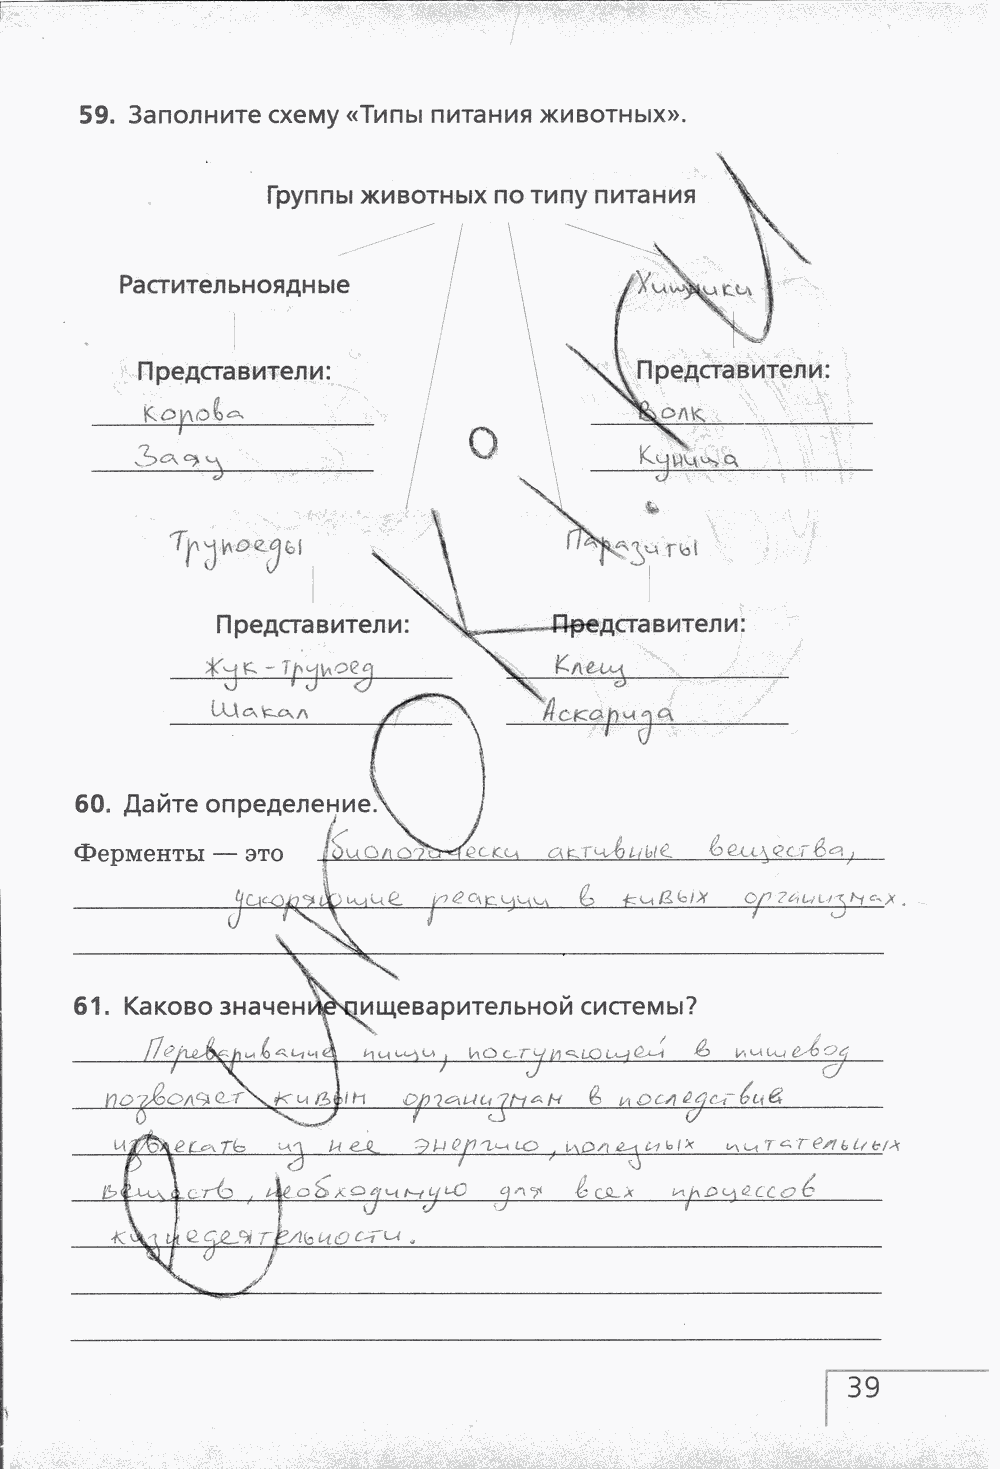 59. Заполните схему «Типы питания животных».
Группы животных по типу питания
Растительноядные
Хищники
Представители:
Представители:
Корова
Волк
Заяц
Куница
Трупоеды
Паразиты
Представители:
Представители:
Жук-трупоед
Клещ
Шакал
Аскарида
60. Дайте определение.
Ферменты — это биологически активные вещества,
ускоряющие реакции в живых организмах.
61. Каково значение пищеварительной системы?
Переваривание пищи, поступающей в пищевод
позволяет живым организмам в последствие
извлекать из неё энергию, полезных питательных
веществ, необходимую для всех процессов
жизнедеятельности.
39